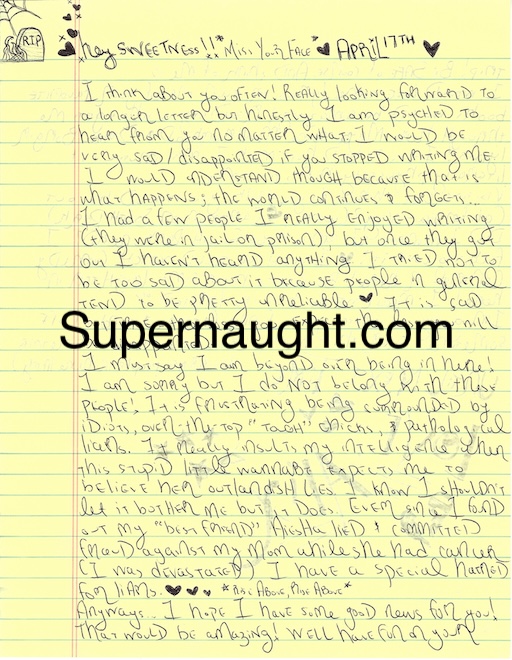 RIP
Hey SWEETNESS!! *Miss Your Face* APRIL 17TH
I think about you often! Really looking forward to
a longer letter but honestly I am psyched to
hear from you no matter what. I would be
very sad/disappointed if you stopped writing me.
I would understand though because that is
what happens; the world continues & forgets...
I had a few people I really enjoyed writing
(they were in jail or prison), but once they got
out I haven't heard anything. I tried not to
be too sad about it because people in general
TEND to be pretty unreliable It is sad
Supernaught.com
I must say I am beyond over being in here!
I am sorry but I do NOT belong with these
people! It is frustrating being surrounded by
idiots, over-the-top "tough" chicks, & pathological
liars. It really insults my intelligence when
this stupid little wannabe expects me to
believe her outlandish lies. I know I shouldn't
let it bother me but it does. Ever since I found
out my "best friend" lied & committed
fraud against my Mom while she had cancer
(I was devastated) I have a special hatred
for liars. *Rise Above, Rise Above*
Anyways... I hope I have some good news for you!
That would be amazing! Well have fun on your